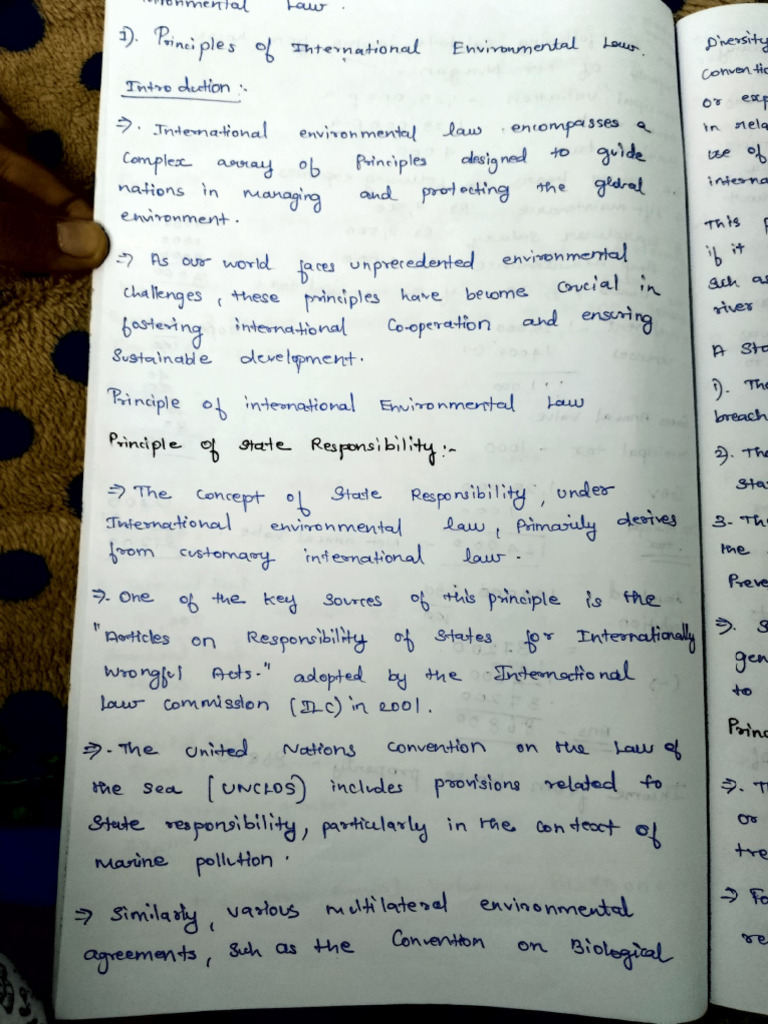 Law.
1). Principles of International Environmental Law.
Introduction :-
⇒. International environmental law encompasses a
Complex array of Principles designed to guide
nations in managing and protecting the global
environment.
⇒ As our world faces unprecedented environmental
challenges, these principles have become Crucial in
fostering international Co-operation and ensuring
Sustainable development.
Principle of international Environmental Law
Principle of state Responsibility:-
⇒ The concept of State Responsibility, under
International environmental law, Primarily derives
from customary international law.
⇒. One of the key sources of this principle is the
"Articles on Responsibility of States for Internationally
Wrongful Acts." adopted by the International
Law commission (ILC) in 2001.
⇒. The United Nations Convention on the Law of
the sea (UNCLOS) includes provisions related to
State responsibility, particularly in the context of
marine pollution.
⇒ Similarly, various multilateral environmental
agreements, Such as the Convention on Biological
Diversity
or
in
use of
This
if it
such as
river
A
1). The
breach
2).
3.
the
⇒.
to
⇒.
or
⇒